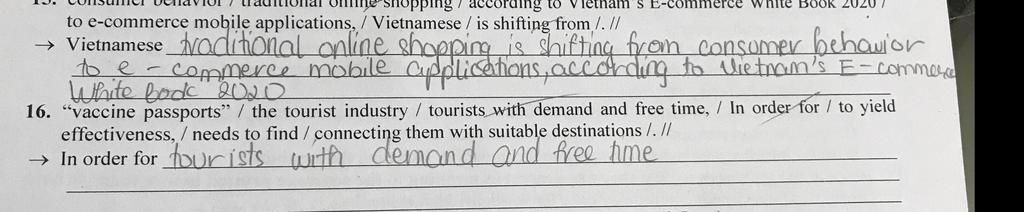 15. consumer behavior / traditional online shopping / according to Vietnam's E-commerce White Book 2020 /
to e-commerce mobile applications, / Vietnamese / is shifting from /. //
→ Vietnamese traditional online shopping is shifting from consumer behavior
to e - commerce mobile applications, according to Vietnam's E-commerce
White Book 2020
16. “vaccine passports” / the tourist industry / tourists with demand and free time, / In order for / to yield
effectiveness, / needs to find / connecting them with suitable destinations /. //
→ In order for tourists with demand and free time